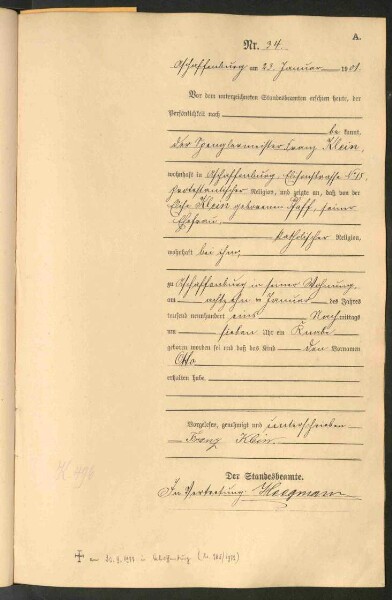 A.
Nr. 34.
Aschaffenburg am 23. Januar 1901.
Vor dem unterzeichneten Standesbeamten erschien heute, der
Persönlichkeit nach
be kannt,
der Spenglermeister Franz Klein,
wohnhaft in Aschaffenburg, Elisenstrasse No 15,
protestantischer Religion, und zeigte an, daß von der
Klein, geborenen Pfaff, seiner
Ehefrau,
katholischer Religion,
wohnhaft bei ihm,
zu Aschaffenburg in seiner Wohnung
am achtzehnten Januar des Jahres
tausend neunhundert eins Nachmittags
um sieben Uhr ein Knabe
geboren worden sei und daß das Kind den Vornamen
Otto
erhalten habe.
Vorgelesen, genehmigt und unterschrieben
Franz Klein
Der Standesbeamte.
In Vertretung:
K 496
in Aschaffenburg